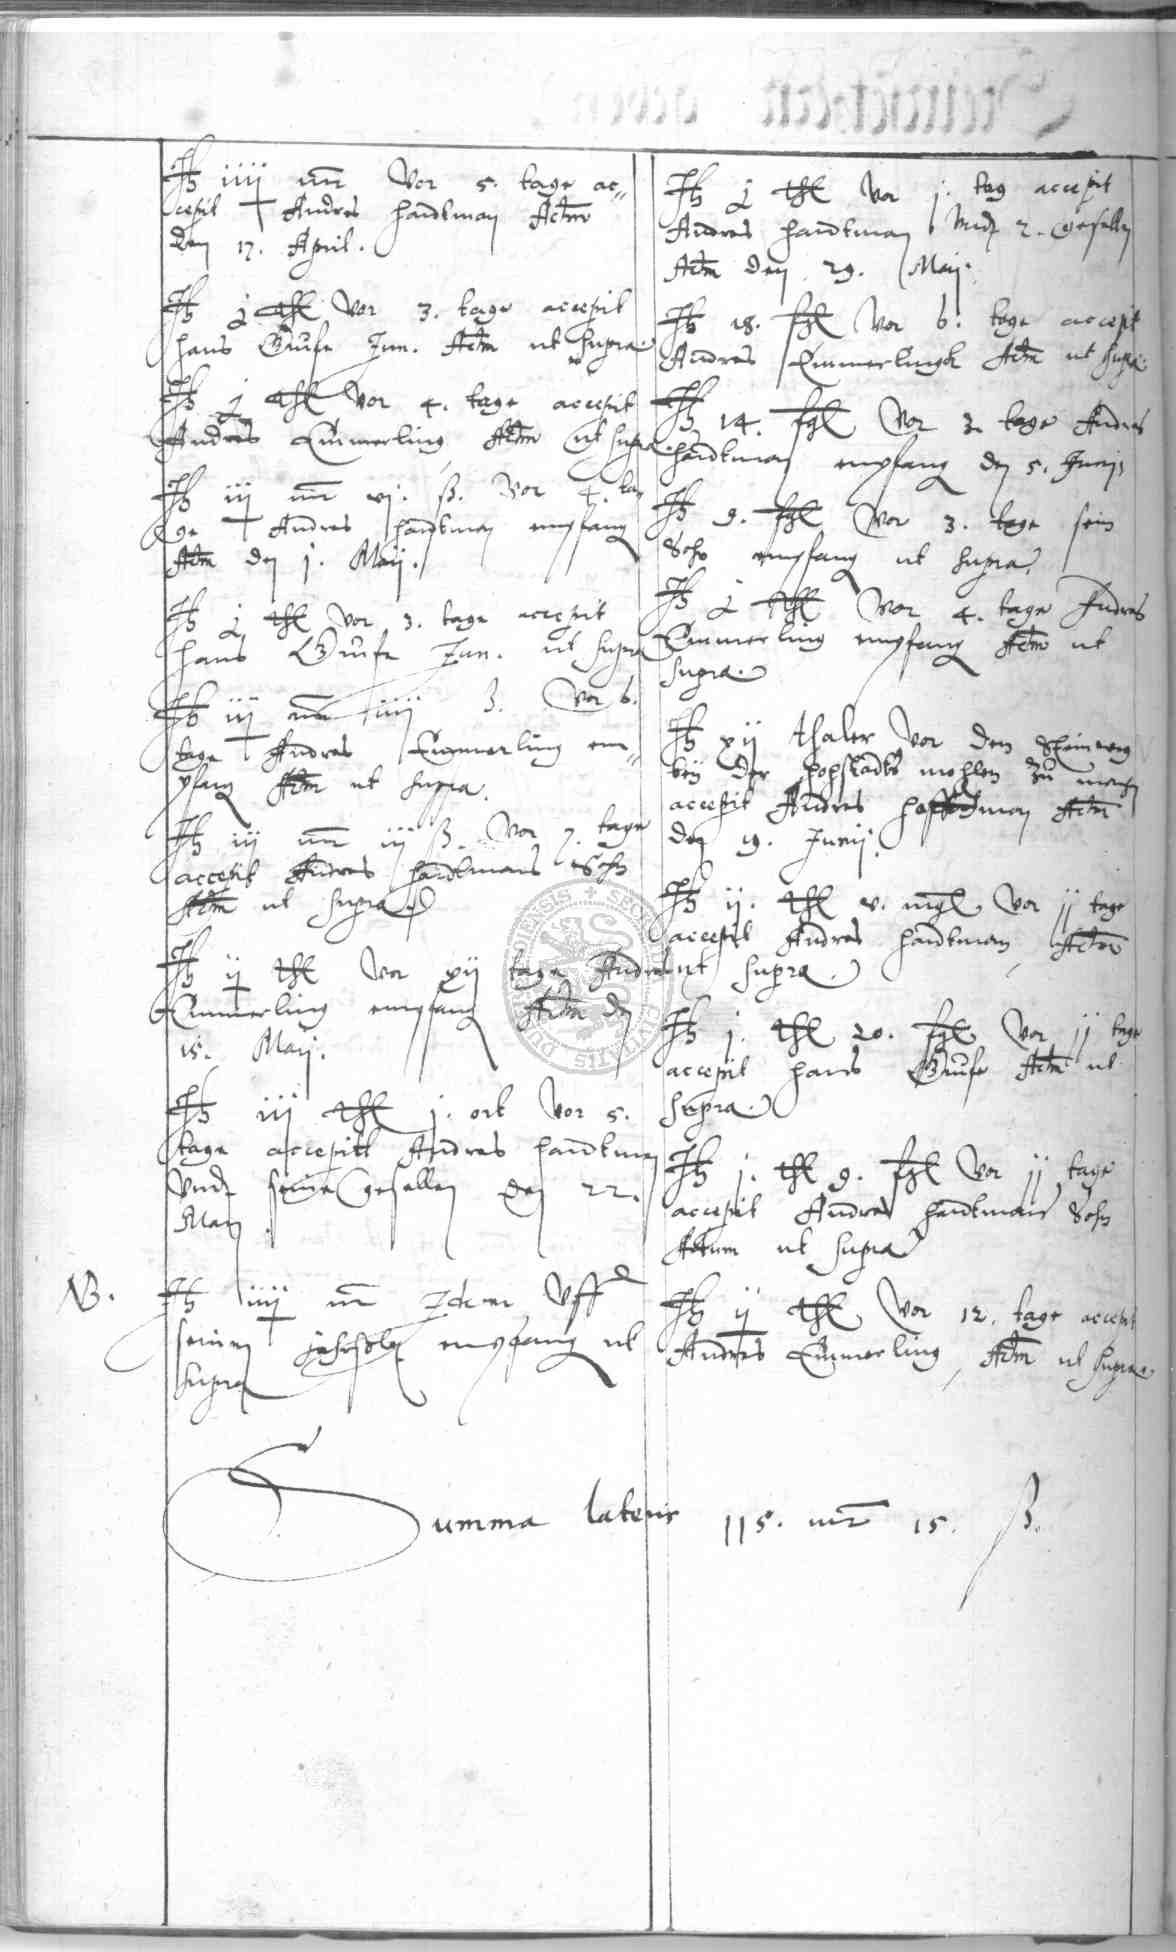 It iiij mr vor 5. tage ac„
cepit Andres Handtman Actm
den 17. April.
It j thl vor 3. tage accepit
Hans Gruse Jun. Actm ut supra
It j thl vor 4. tage accepit
Andres Emmerling Actm ut supra.
It iij mr vj. ß. vor 4. ta
ge Andres Handtman empfang
Actm den j. Maij.
It j thl vor 3. tage accepit
Hans Gruse Jun. ut supra
It iij mr iiij ß. vor 6.
tage Andres Emmerling em„
pfang Actm ut supra.
It iij mr iij ß. vor 7. tage
accepit Andres Handtmans Sohn
Actm ut supra
It ij thl vor xij tage Andres
Emmerling empfang Actm den
15. Maij.
It iij thl j. ort vor 5.
tage accepit Andres Handtman
vnd seine gesellen den 22.
Maij
NB. It iiij mr Idem vff
seinen empfang ut
supra
It j thl vor j. tag accepit
Andres Handtman vnd 2. gesellen
Actm den 29. Maij.
It 18. fgl vor 6. tage accepit
Andres Emmerlingk Actm ut supra.
It 14. fgl vor 3. tage Andres
Handtman empfang den 5. Junij
It 9. fgl vor 3. tage sein
Sohn empfang ut supra.
It j thl vor 4. tage Andres
Emmerling empfang Actm ut
supra.
It xij thaler vor den Steinweg
bey der mohlen zu machen
accepit Andres Actm
den 19. Junij.
It ij. thl v. mgl. vor jj tage
accepit Andres Handtman Actm
ut supra.
It j. thl 20. fgl vor jj tage
accepit Hans Gruse Actm ut
supra.
It j. thl 9. fgl vor jj tage
accepit Andres Handtmans Sohn
Actum ut supra
It ij thl vor 12. tage accepit
Andres Emmerling Actm ut supra.
Summa lateris 115. mr 15. ß.